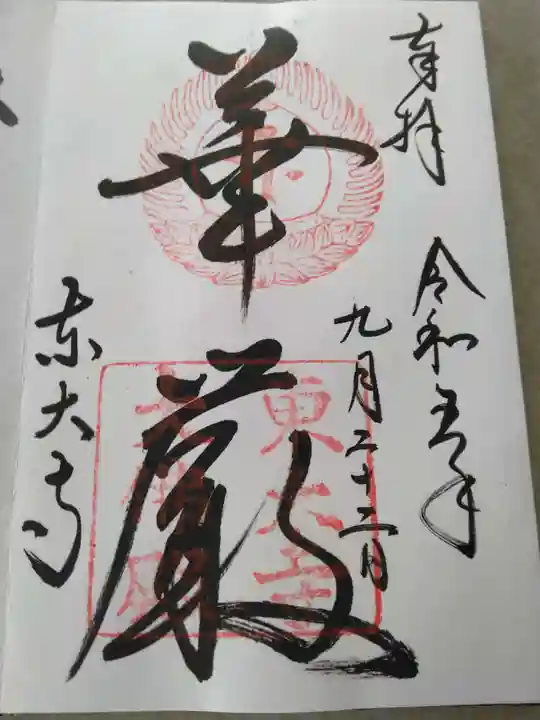 奉拝
令和五年
九月二十二日
華厳
東大寺
東大寺
大仏殿